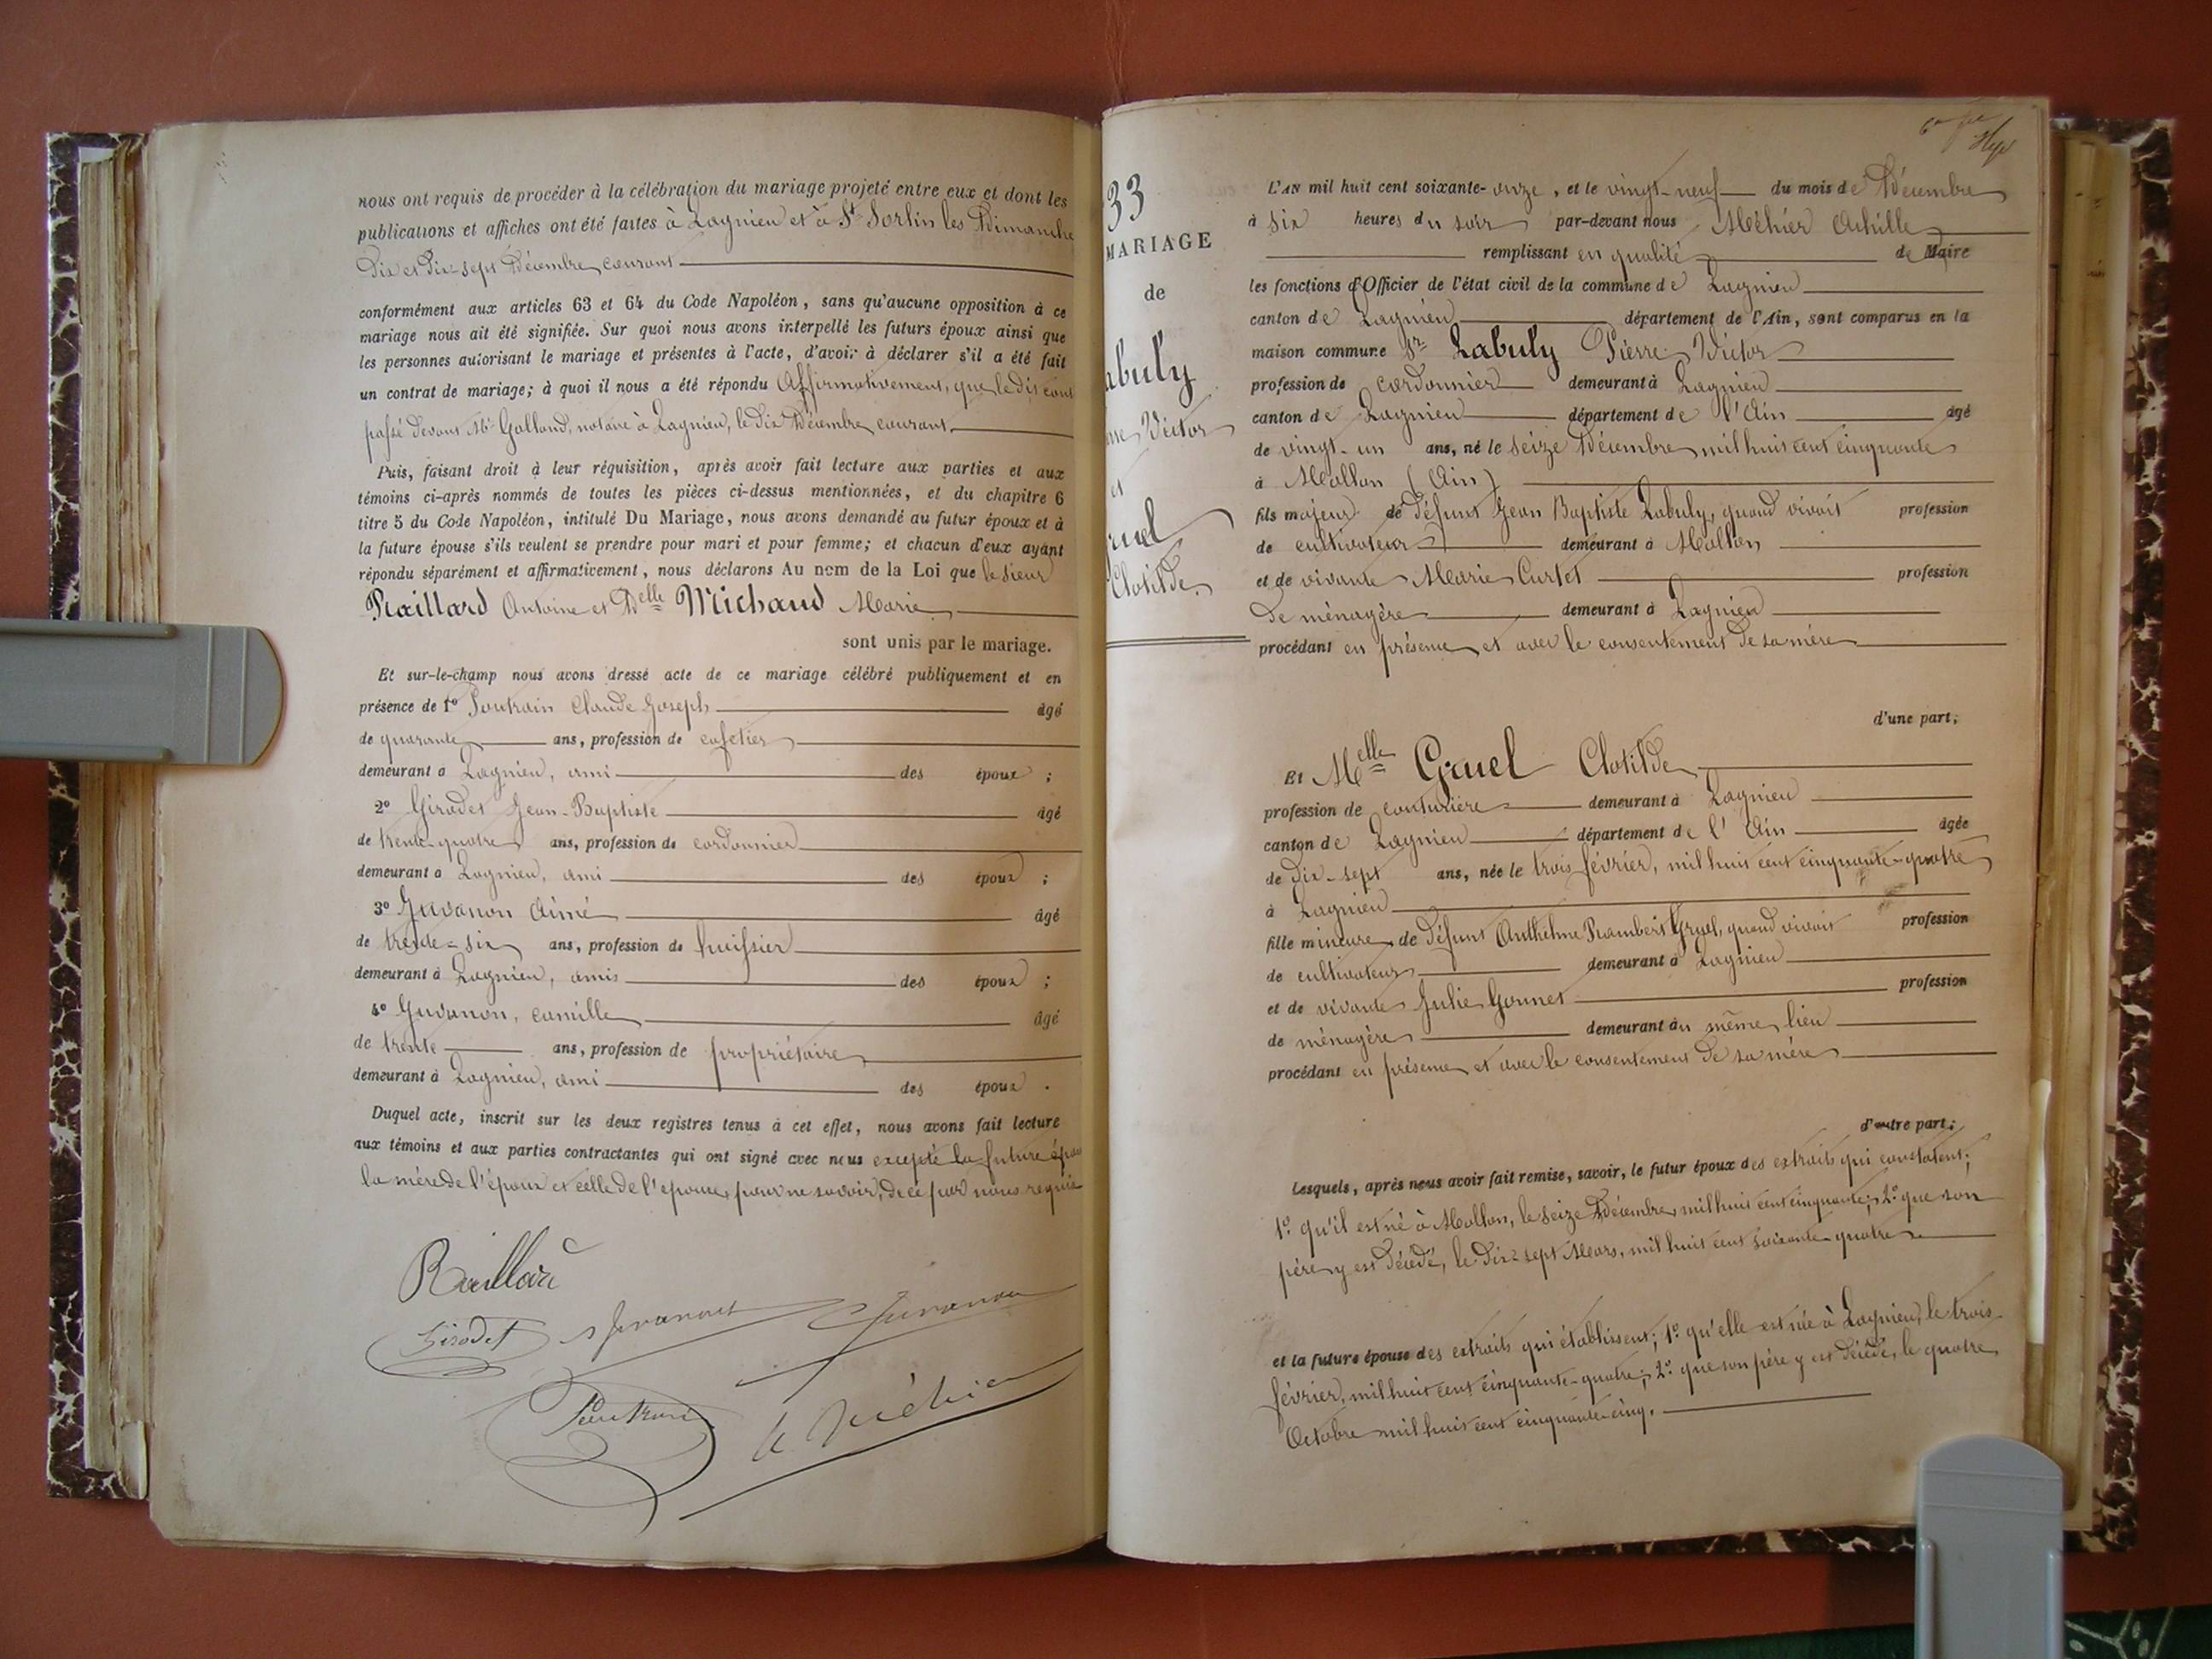 nous ont requis de procéder à la célébration du mariage projeté entre eux et dont les
publications et affiches ont été faites à Lagnieu et à St Sorlin les Dimanche
Dix et Dix-sept Décembre courant
conformément aux articles 63 et 64 du Code Napoléon, sans qu'aucune opposition à ce
mariage nous ait été signifiée. Sur quoi nous avons interpellé les futurs époux ainsi que
les personnes autorisant le mariage et présentes à l'acte, d'avoir à déclarer s'il a été fait
un contrat de mariage; à quoi il nous a été répondu Affirmativement, que le dit cont
passé devant Me Galland, notaire à Lagnieu, le dix Décembre courant.
Puis, faisant droit à leur réquisition, après avoir fait lecture aux parties et aux
témoins ci-après nommés de toutes les pièces ci-dessus mentionnées, et du chapitre 6
titre 5 du Code Napoléon, intitulé Du Mariage, nous avons demandé au futur époux et à
la future épouse s'ils veulent se prendre pour mari et pour femme; et chacun d'eux ayant
répondu séparément et affirmativement, nous déclarons Au nom de la Loi que le sieur
Raillard Antoine et Delle Michaud Marie
sont unis par le mariage.
Et sur-le-champ nous avons dressé acte de ce mariage célébré publiquement et en
présence de 1° Poutrain Claude Joseph âgé
de quarante ans, profession de cafetier
demeurant à Lagnieu, ami des époux ;
2° Girodet Jean-Baptiste âgé
de trente-quatre ans, profession de cordonnier
demeurant à Lagnieu, ami des époux ;
3° Juvanon Aimé âgé
de trente-six ans, profession de huissier
demeurant à Lagnieu, amis des époux ;
4° Juvanon, Camille âgé
de trente ans, profession de propriétaire
demeurant à Lagnieu, ami des époux .
Duquel acte, inscrit sur les deux registres tenus à cet effet, nous avons fait lecture
aux témoins et aux parties contractantes qui ont signé avec nous excepté la future épou
la mère de l'époux et celle de l'épouse, pour ne savoir, de ce par nous requis
Raillard
Girodet Juvanon Juvanon
Poutrain
A Méhier
33
MARIAGE
de
abuly
Victor
et
ruel
Clotilde.
L'AN mil huit cent soixante-onze, et le vingt-neuf du mois de Décembre
à six heures du soir par-devant nous Méhier Achille
remplissant en qualité de Maire
les fonctions d'Officier de l'état civil de la commune de Lagnieu
canton de Lagnieu département de l'Ain, sont comparus en la
maison commune Sr Labuly Pierre Victor
profession de cordonnier demeurant à Lagnieu
canton de Lagnieu département de l'Ain âgé
de vingt-un ans, né le seize Décembre mil huit cent cinquante
à Mollon (Ain)
fils majeur de défunt Jean Baptiste Labuly, quand vivait profession
de cultivateur demeurant à Mollon
et de vivante Marie Curtet profession
de ménagère demeurant à Lagnieu
procédant en présence et avec le consentement de sa mère
d'une part;
Et Melle Gruel Clotilde
profession de couturière demeurant à Lagnieu
canton de Lagnieu département de l'Ain âgée
de dix-sept ans, née le trois février, mil huit cent cinquante-quatre
à Lagnieu
fille mineure de défunt Anthelme Rambert Gruel, quand vivait profession
de cultivateur demeurant à Lagnieu
et de vivante Julie Gonnet profession
de ménagère demeurant au même lieu
procédant en présence et avec le consentement de sa mère
d'autre part;
Lesquels, après nous avoir fait remise, savoir, le futur époux des extraits qui constatent;
1° qu'il est né à Mollon, le seize Décembre mil huit cent cinquante; 2° que son
père y est décédé, le dix-sept Mars, mil huit cent soixante-quatre
et la future épouse des extraits qui établissent; 1° qu'elle est née à Lagnieu, le trois
février, mil huit cent cinquante-quatre; 2° que son père y est décédé, le quatre
Octobre mil huit cent cinquante-cinq.